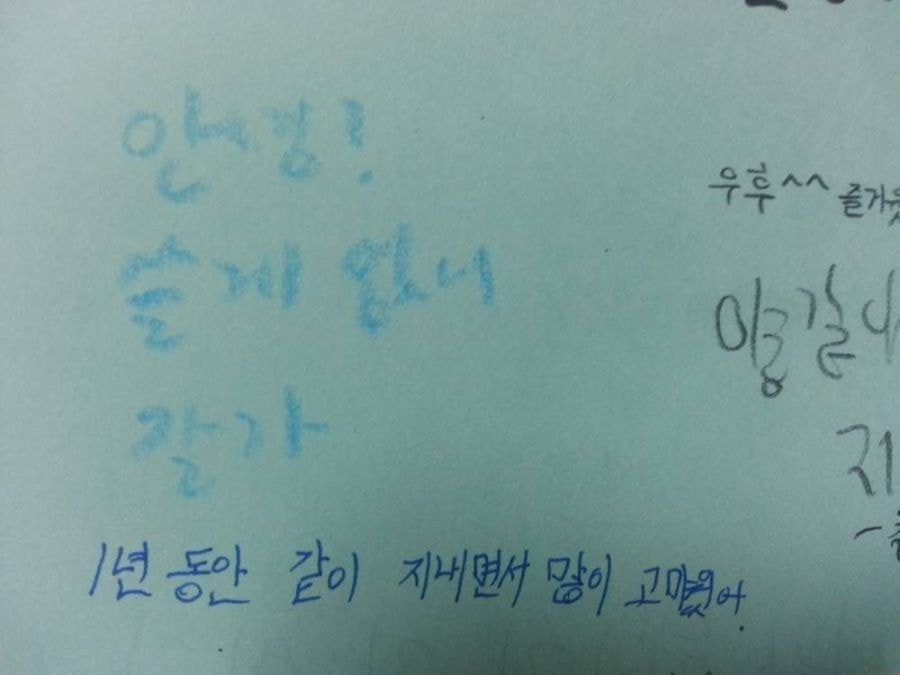 안녕!
쓸게 없으니
잘가
1년 동안 같이 지내면서 많이 고마웠어.
우후^^ 즐거웠
지